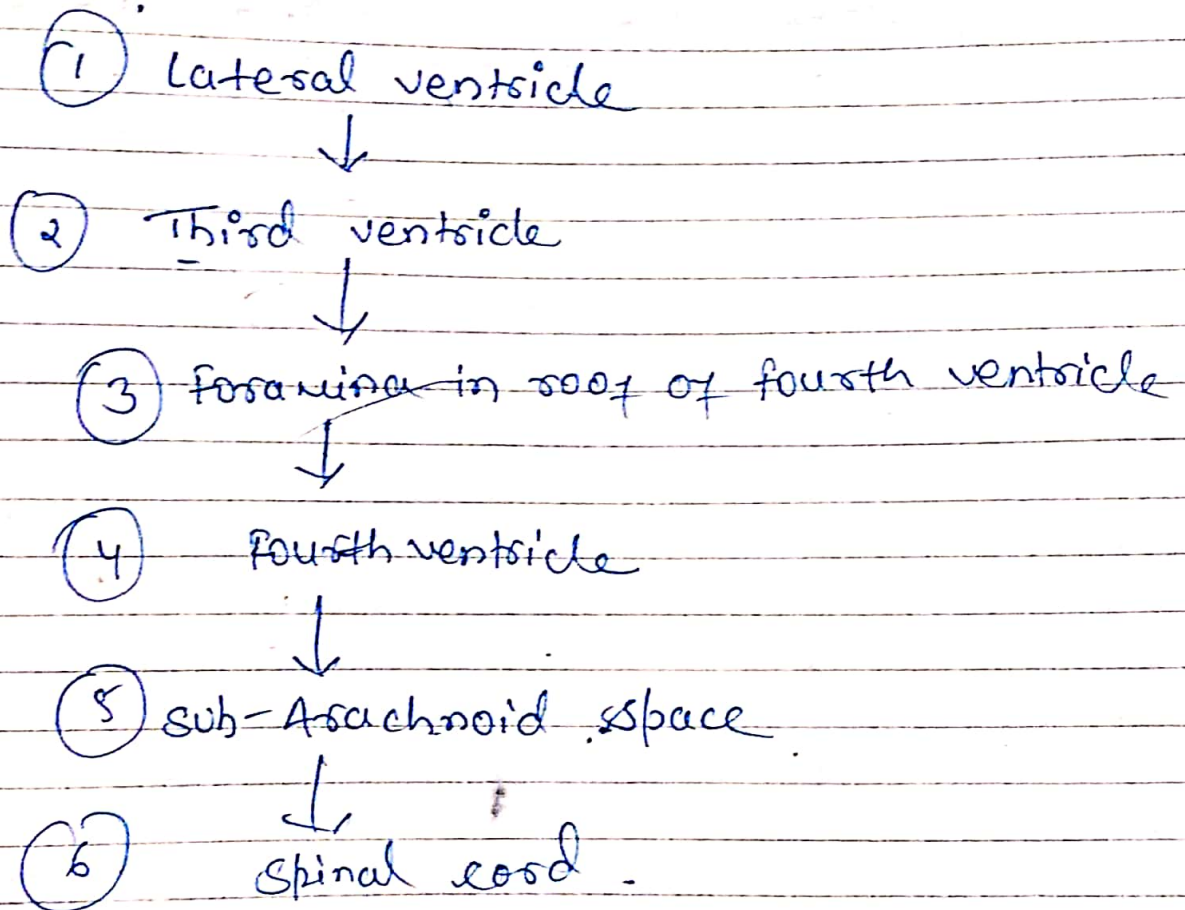 1 Lateral ventricle
2 Third ventricle
3 Foramina in roof of fourth ventricle
4 Fourth ventricle
5 Sub-Arachnoid space
6 Spinal cord.